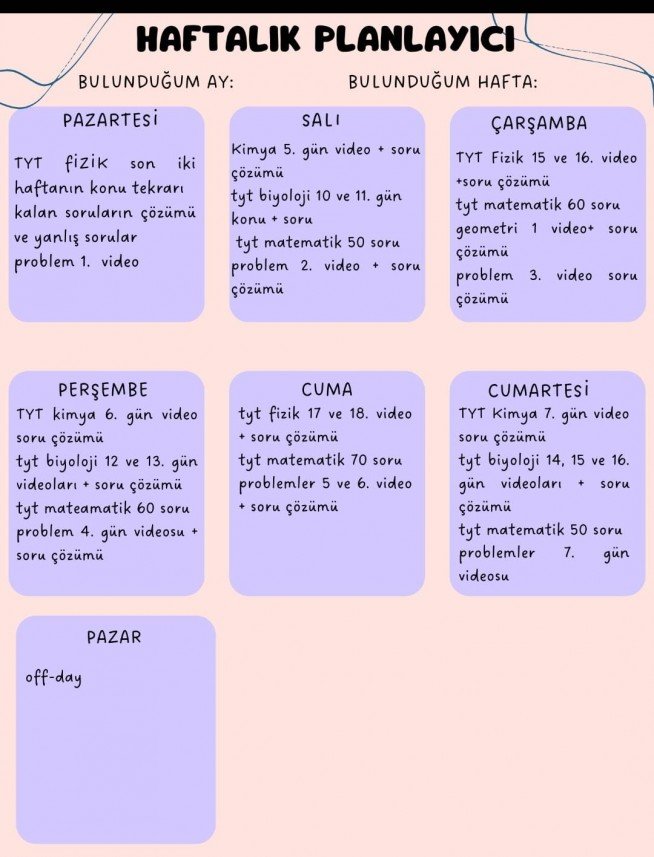 HAFTALIK PLANLAYICI
BULUNDUĞUM AY:
BULUNDUĞUM HAFTA:
PAZARTESİ
TYT fİZİK son iki
haftanın konu tekrarı
kalan soruların çözümü
ve yanlış sorular
problem 1. video
SALI
Kimya 5. gün video + soru
çözümü
tyt biyoloji 10 ve 11. gün
konu + soru
tyt matematik 50 soru
problem 2. video + soru
çözümü
ÇARŞAMBA
TYT Fizik 15 ve 16. video
+soru çözümü
tyt matematik 60 soru
geometri 1 video+ soru
çözümü
problem 3. video soru
çözümü
PERŞEMBE
TYT kimya 6. gün video
soru çözümü
tyt biyoloji 12 ve 13. gün
videoları + soru çözümü
tyt mateamatik 60 soru
problem 4. gün videosu +
soru çözümü
CUMA
tyt fizik 17 ve 18. video
+ soru çözümü
tyt matematik 70 soru
problemler 5 ve 6. video
+ soru çözümü
CUMARTESİ
TYT Kimya 7. gün video
soru çözümü
tyt biyoloji 14, 15 ve 16.
gün videoları + soru
çözümü
tyt matematik 50 soru
problemler 7. gün
videosu
PAZAR
off-day